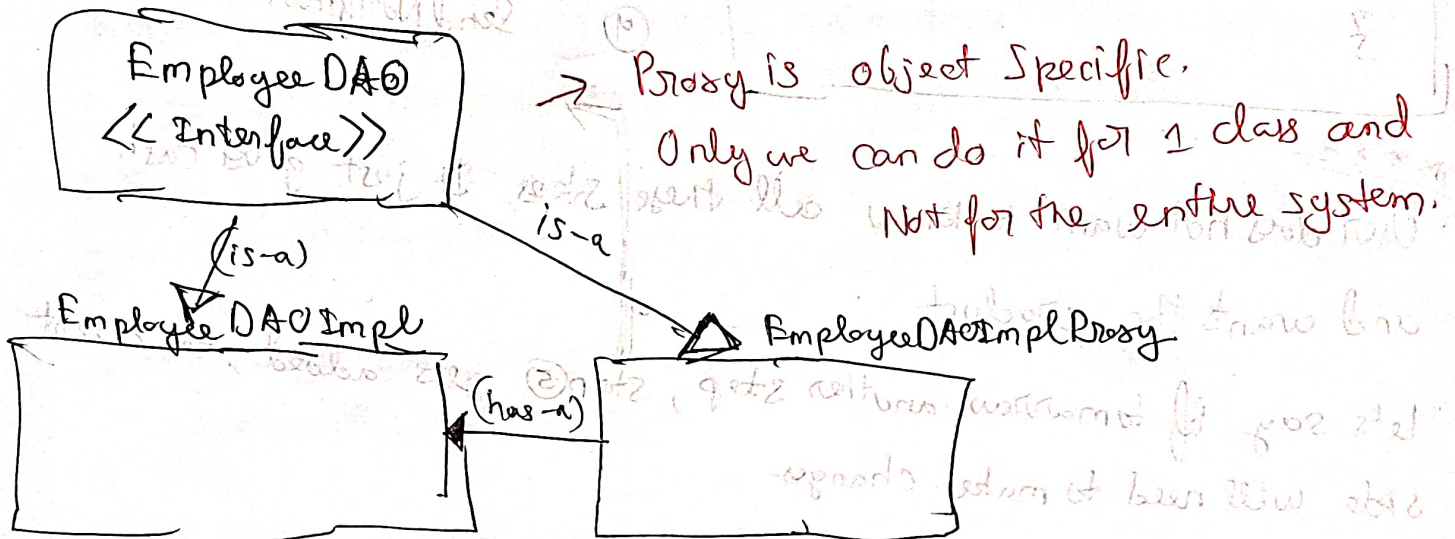 Employee DAO
<< Interface >>
→ Proxy is object Specific.
Only we can do it for 1 class and
Not for the entire system.
(is-a)
is-a
EmployeeDAOImpl
EmployeeDAOImplProxy
(has-a)